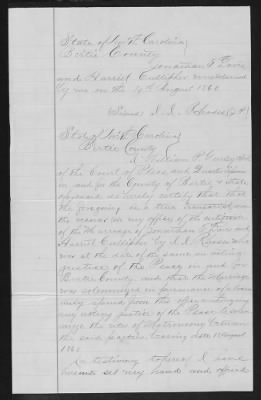 State of North Carolina
Bertie County
Jonathan T. Davis
and Harriet Culliepher were married
by me on the 19th August 1860.
Signed J. J. Rhodes (J.P.)
State of North Carolina
Bertie County
I William P. Gurley Clerk
of the Court of Pleas and Quarter Sessions
in and for the County of Bertie & State
aforesaid do hereby certify that
the foregoing is a true
the record in my office of the
of the Marriage of Jonathan T. Davis and
Harriet Culliepher by J. J. Rhodes who
was at the date of the same an acting
justice of the Peace in and for
Bertie County and that the Marriage
was solemnized in pursuance of a license
duly issued from this office
any acting justice of the Peace to
the rites of Matrimony between
the said parties, bearing date August
1860
In testimony whereof I have
hereunto set my hand and affixed